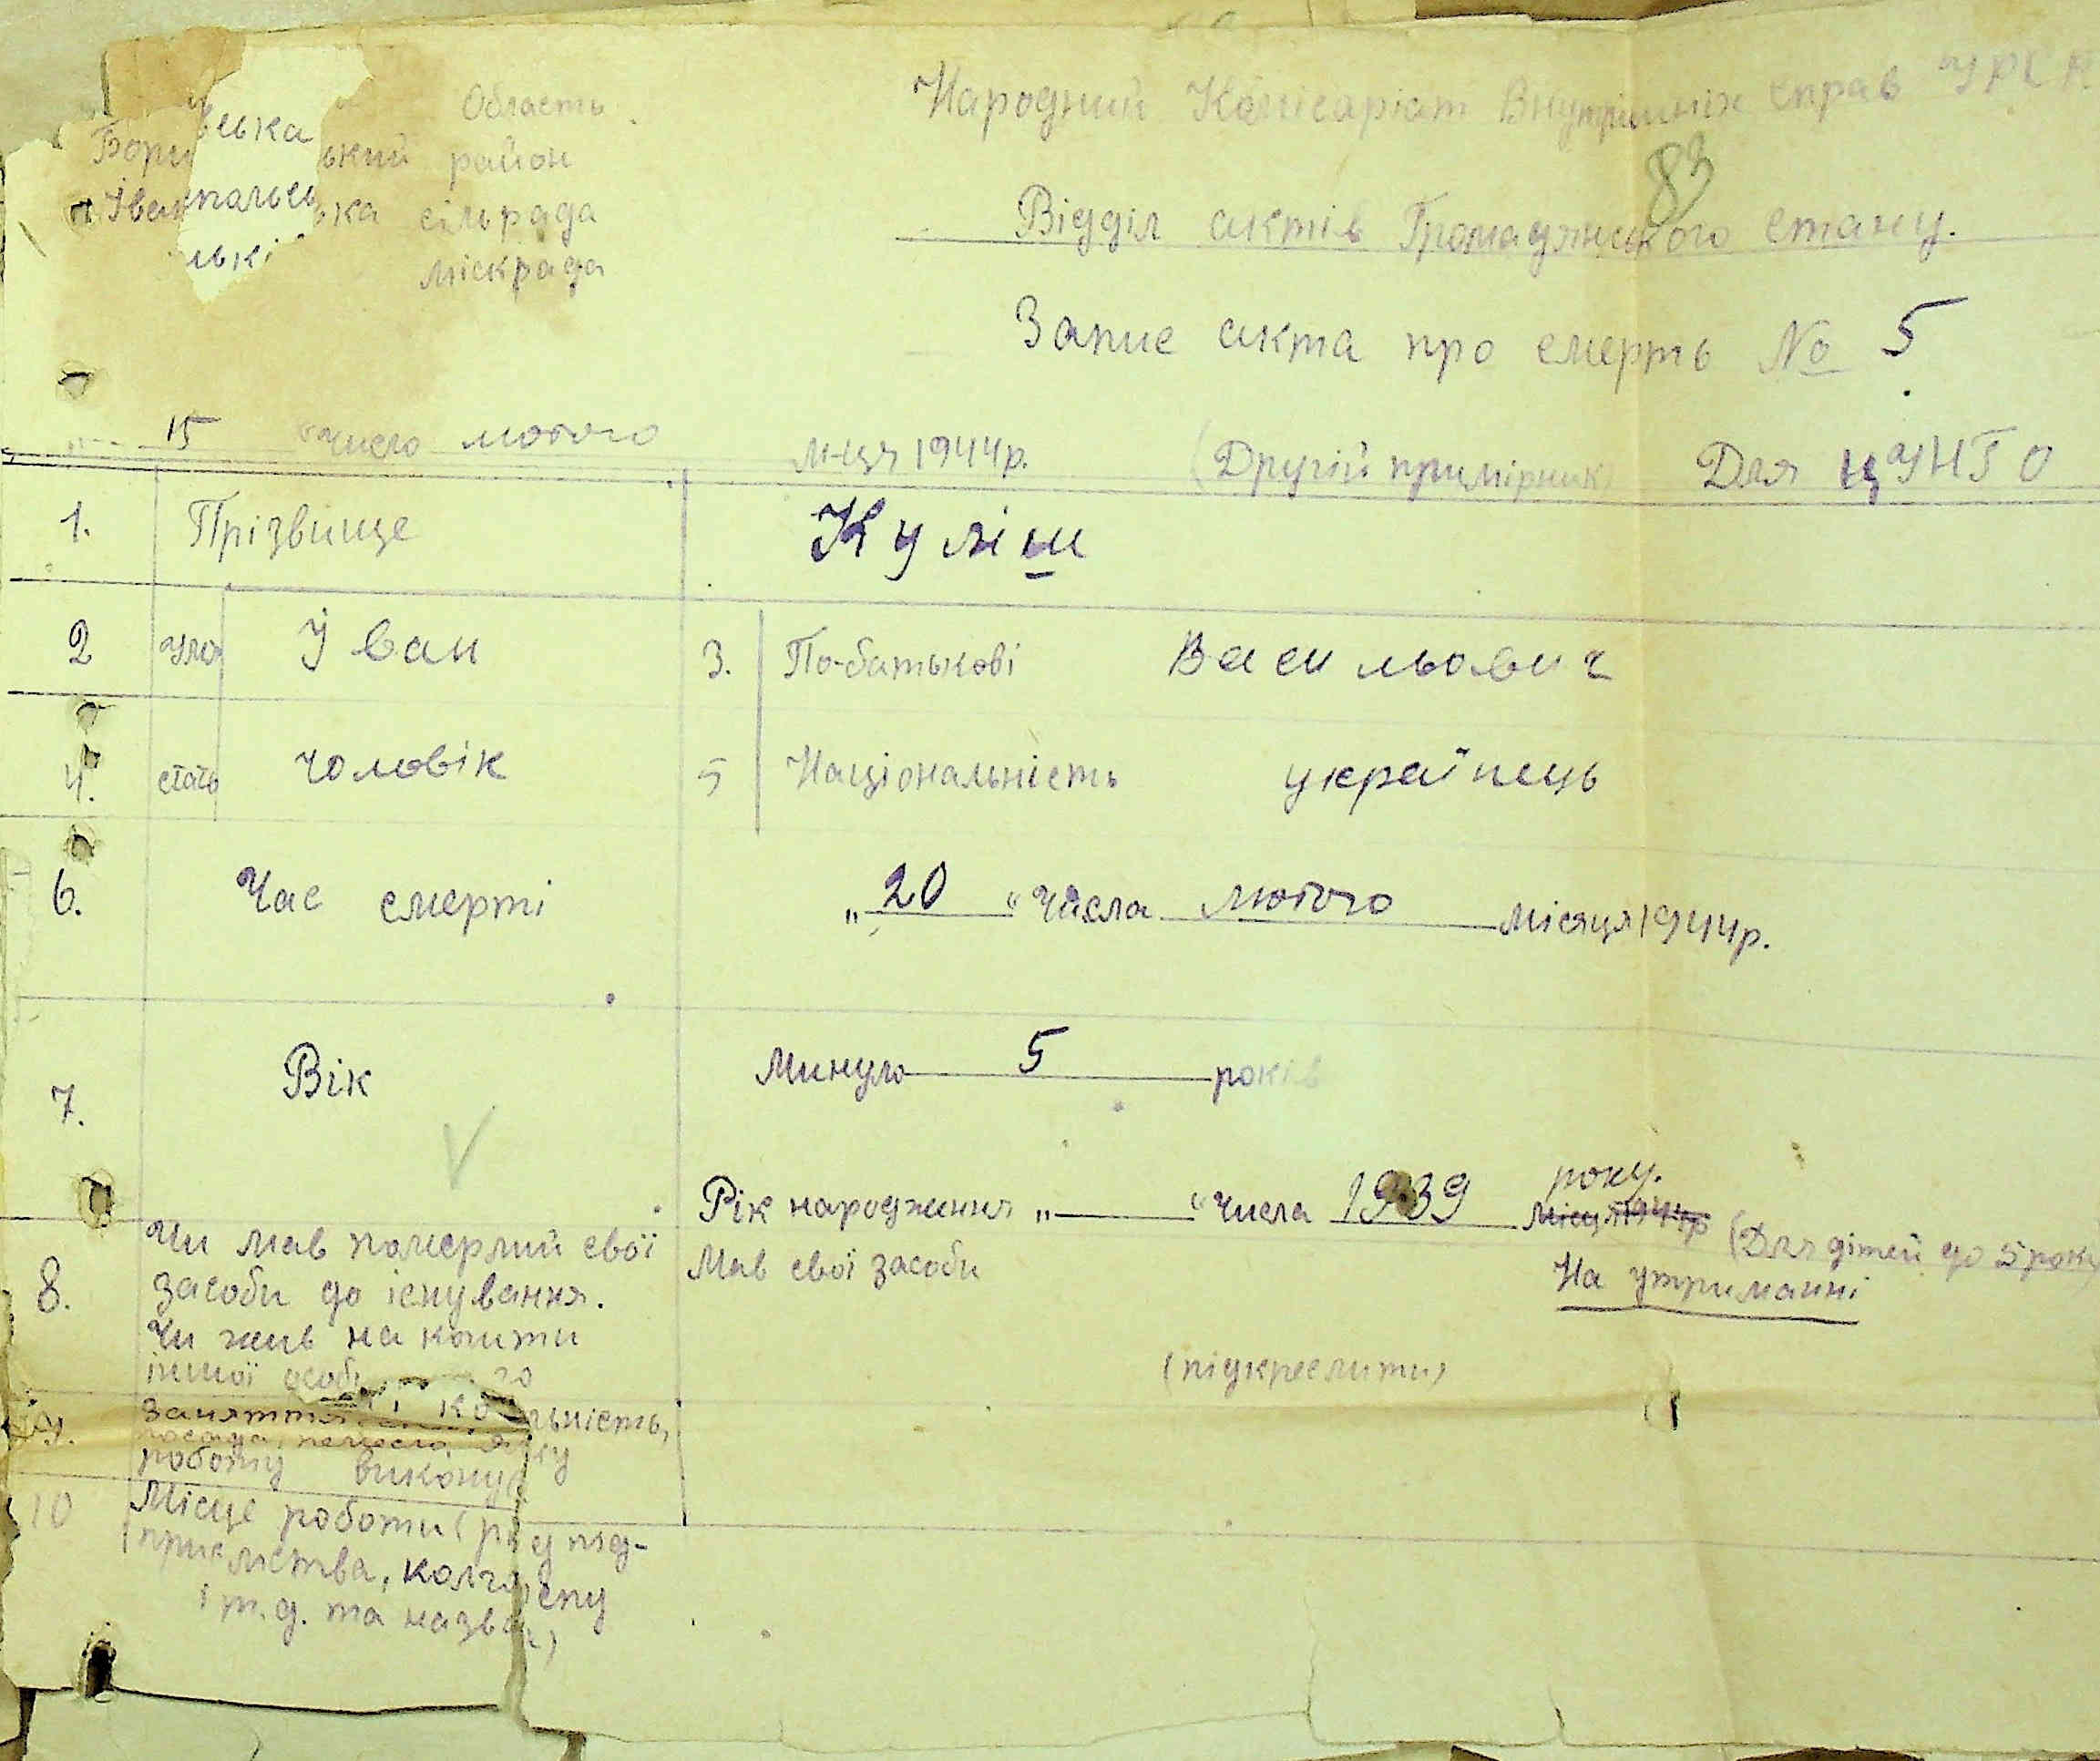 Область
ська
Бори ький район
Іванпольська сільрада
міськрада
Народний Комісаріат Внутрішніх справ УРСР
83
Відділ актів Громадянського стану.
Запис акта про смерть № 5
15 число лютого м-ця 1944р. (Другий примірник) Для ЦУНГО
1. Прізвище Куліш
2 Імя Іван 3. По-батькові Васильович
4. стать чоловік 5 Національність українець
6. Час смерті „20“ числа лютого місяця 1944р.
7. Вік Минуло 5 років
Рік народження „ “ числа 1939 року. місяця 1944р (Для дітей до 5 років
8. Чи мав померлий свої засоби до існування. Мав свої засоби На утриманні
Чи жив на кошти
іншої особи (підкреслити)
9. Заняття льність,
посада, ку
роботу викону
10 Місце роботи (рід під-
приємства, колгоспу
і т.д. та назва)